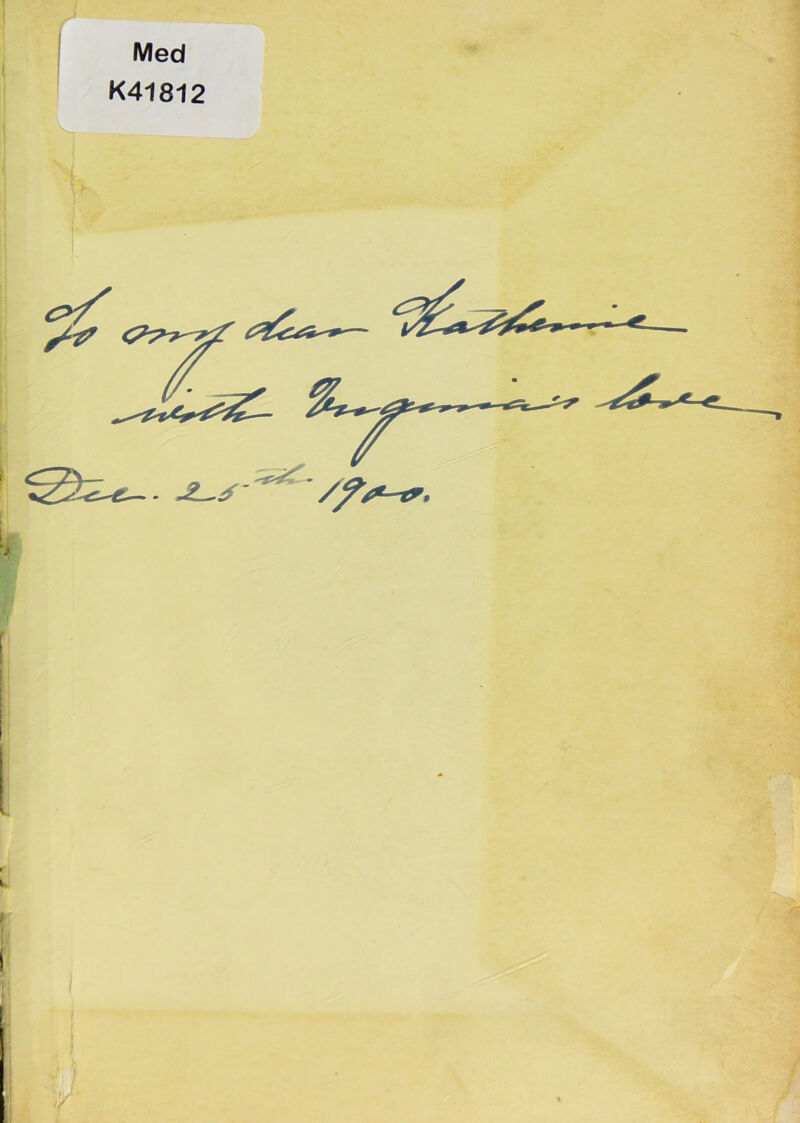 Med
K41812
To my dear Katherine
with Virginia's love
Dec. 25th 1900.